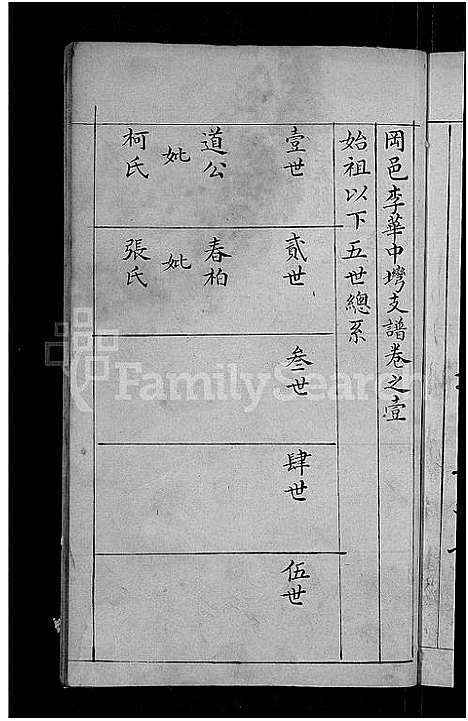 岡邑李華中塆支譜卷之壹
始祖以下五世總系
壹世
貳世
叁世
肆世
伍世
道公
妣
柯氏
春柏
妣
張氏
FamilySearch